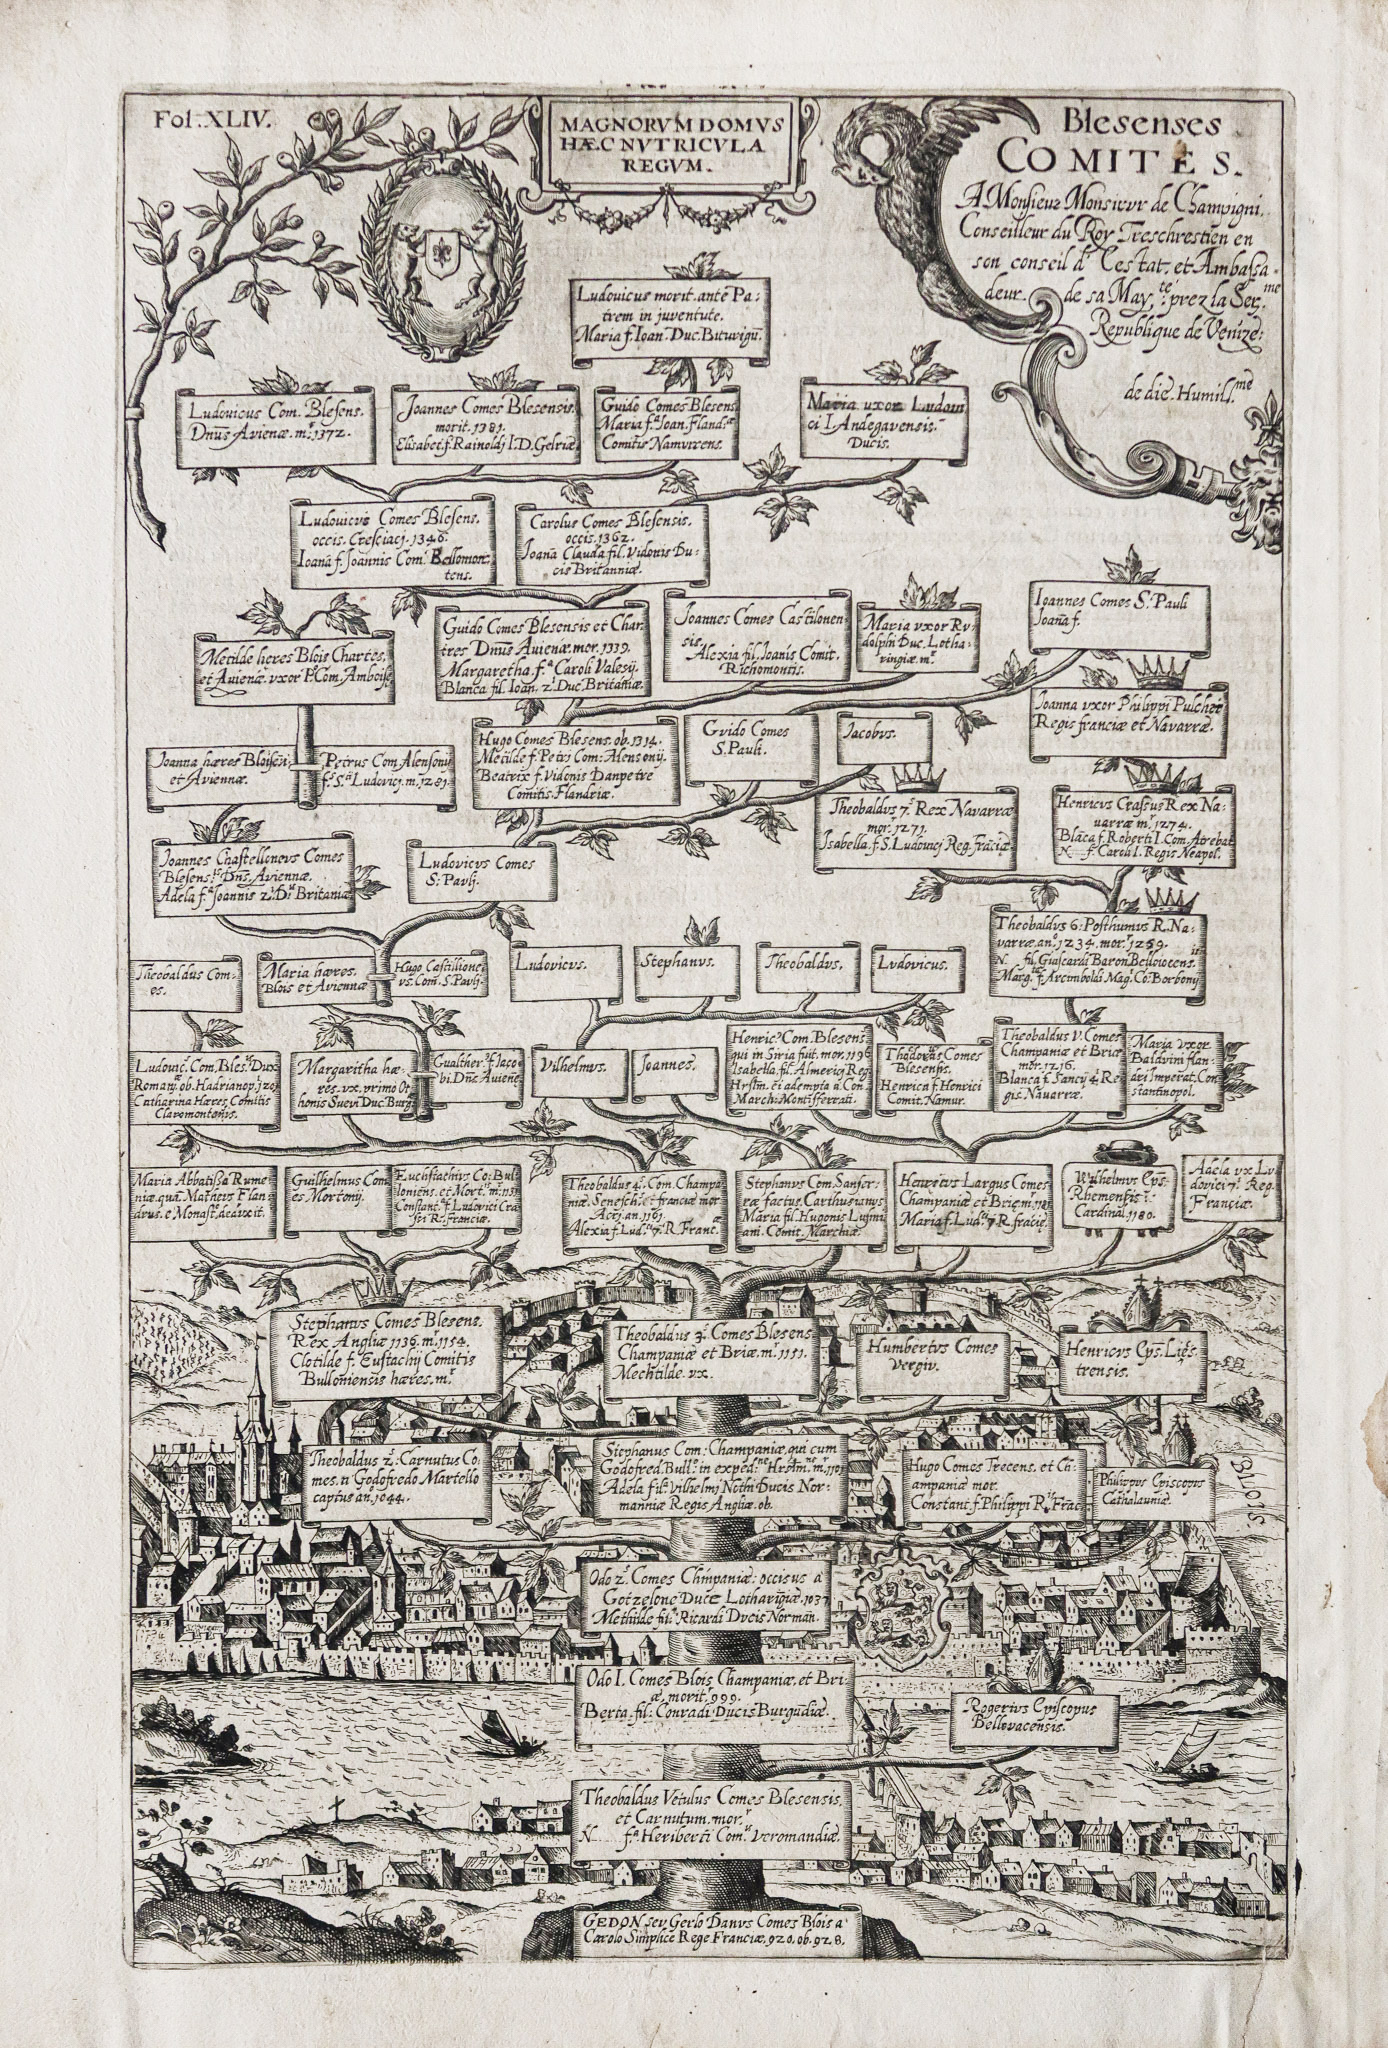 Fol. XLIV.
MAGNORVM DOMVS
HÆC NVTRICVLA
REGVM.
Blesenses
COMITES.
A Monsieur Monsieur de Champigni,
Conseilleur du Roy Treschrestien en
son conseil d' Cestat, et Ambassa-
deur. de sa May,té prez la Ser,me
Republique de Venize:
de die. Humil,me
Ludovicus morit. ante Pa:
trem in juventute.
Maria f. Ioan. Duc. Biturigū.
Ludovicus Com. Blesens.
Dnūs Avienæ. mr. 1372.
Joannes Comes Blesensis
morit. 1381.
Elisabet f. Rainoldj I. D. Gelriæ
Guido Comes Blesens
Maria f.a Joan. Fland.æ
Comitis Namurcens.
Maria uxor Ludovi
ci I. Andegavensis
Ducis.
Ludovicus Comes Blesens.
occis. Cresciacj. 1346.
Ioanā f. Joannis Com. Bellomon
tens.
Carolus Comes Blesensis.
occis. 1362.
Joanā Clauda fil. Vidonis Du:
cis Britanniæ.
Metilde heres Blois Chartes,
et Avienæ. vxor P. Com. Amboise
Guido Comes Blesensis et Char
tres Dnus Avienæ. mor. 1339.
Margaretha. f.a Caroli Valesij.
Blanca fil. Ioan. 2. Duc. Britaniæ.
Joannes Comes Castilonen
sis
Alexia fil. Joanis Comit.
Richomontis.
Maria vxor Ru
dolphi Duc. Lotha
ringiæ. mr.
Ioannes Comes S. Pauli
Ioanā f.
Joanna vxor Philippi Pulcher
Regis franciæ et Navarræ.
Joanna hæres Bloisen
et Aviennæ.
Petrus Com. Alensonij
f. S. Ludovicj. m. 1281.
Hugo Comes Blesens. ob. 1314.
Metilde f. Petri Com: Alensonij.
Beatrix f. Vidonis Danpetre
Comitis Flandriæ.
Gvido Comes
S. Pauli.
Jacobvs.
Theobaldvs 7. Rex Navarræ
mor. 1271.
Isabella. f. S. Ludovicj Reg. fraciæ
Henricvs Crassvs Rex Na:
varræ m. 1274.
Blāca f. Roberti I. Com. Atrebat
N f. Caroli I. Regis Neapol.
Joannes Chastellenevs Comes
Blesens. Dns. Aviennæ.
Adela f.a Joannis 2. D. Britaniæ
Ludovicvs Comes
S. Pavlj.
Theobaldvs 6: Posthumus R. Na:
varræ. an. 1234. mor. 1259.
N. fil. Giascardi Baron Belloiocens.
Marg. f. Arcimboldi Mag. Co: Borbonij
Theobaldus Com:
es.
Maria hæres.
Blois et Aviennæ
Hugo Castillione
vs. Com. S. Pavlj.
Ludovicvs.
Stephanvs.
Theobaldvs.
Lvdovicus.
Ludovic. Com. Bles. Dux
Romany. ob. Hadrianop. 120
Catharina Hæres, Comitis
Claromontōnis.
Margaritha hæ:
res. vx. primo Ot
honis Suevi Duc. Burg
Gualther. f. Jaco
bi. Dns. Aviene
Vilhelmvs.
Joannes.
Henric. Com. Blesens
qui in Siria fuit. mor. 1196
Isabella. fil. Almerici Reg
Hrslm. ei adempta a. Con.
March: Montisferrati.
Thodorus Comes
Blesensis.
Henrica f. Henrici
Comit. Namur.
Theobaldus V. Comes
Champaniæ et Briæ
mor. 1216.
Blanca f. Sancij 4 Re
gis Navarræ.
Maria Vxor
Balduini flan
dri Imperat. Con
stantinopol.
Maria Abbatissa Rume
niæ. quā Matheus Flan
drus. e Monast. deduxit.
Guilhelmus Com
es Mortonij
Euchstachius Co: Bul
loniens. et Mort. m. 115
Constanc. f. Ludovici Cra
ssi R. Franciæ.
Theobaldus 4. Com. Champa
niæ. Senesch. et franciæ mor
Acri. an. 1191.
Alexia f. Lud. 7. R. Franc.
Stephanus Com. Sanser:
ræ factus. Carthusianus
Maria fil. Hugonis Lusini
ani. Comit. Marchiæ.
Henricus Largus Comes
Champaniæ et Briæ. m. 1181
Maria f. Lud. 7. R. fraciæ.
Wilhelmus Eps.
Rhemensis
Cardinal. 1180.
Adela vx Lu
dovici 7. Reg.
Franciæ.
Stephanus Comes Blesens.
Rex Angliæ 1136. m. 1154.
Clotilde f. Eustachij Comitis
Bulloniensis hæres. m.
Theobaldus 3. Comes Blesens
Champaniæ et Briæ. m. 1151.
Mechtilde. vx.
Humbertvs Comes
Vergiv.
Henricvs Eps. Liès
trensis.
Theobaldus 2. Carnutus Co
mes. a Godofredo Martello
captus an. 1044.
Stephanus Com: Champaniæ, qui cum
Godofred. Bull. in exped. Hrslm. m. 1101
Adela fil. Vilhelmj Nothi Ducis Nor-
manniæ Regis Angliæ. ob.
Hugo Comes Trecens. et C
ampaniæ mor.
Constant. f. Philippi R. Frac
Philippus Episcopus
Cathalauniæ.
BLOIS.
Odo 2. Comes Chmpaniæ: occisus a
Gotzelone Duce Lotharigiæ. 1037
Methilde fil. Ricardi Dvcis Norman.
Odo I. Comes Blois Champaniæ. et Bri
æ. morit. 999.
Berta. fil: Conradi Ducis Burgudiæ.
Rogerius Episcopus
Bellovacensis.
Theobaldus Vetulus Comes Blesensis
et Carnutum. mor.r
N f.a Heriberti Com. Veromandiæ.
GEDON sev Gerlo Danvs Comes Blois a
Carolo Simplice Rege Franciæ. 920. ob. 928.